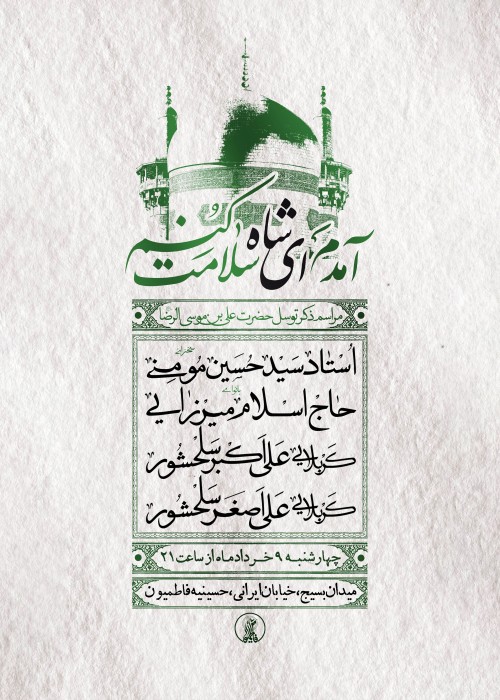 آمدم ای شاه سلامت کنم
مراسم ذکر توسل حضرت علی بن موسی الرضا
سخنران
استاد سید حسین مومنی
بانوای
حاج اسلام میرزایی
کربلایی علی اکبر سلحشور
کربلایی علی اصغر سلحشور
چهارشنبه ۹ خرداد ماه از ساعت ۲۱
میدان بسیج، خیابان ایرانی، حسینیه فاطمیون